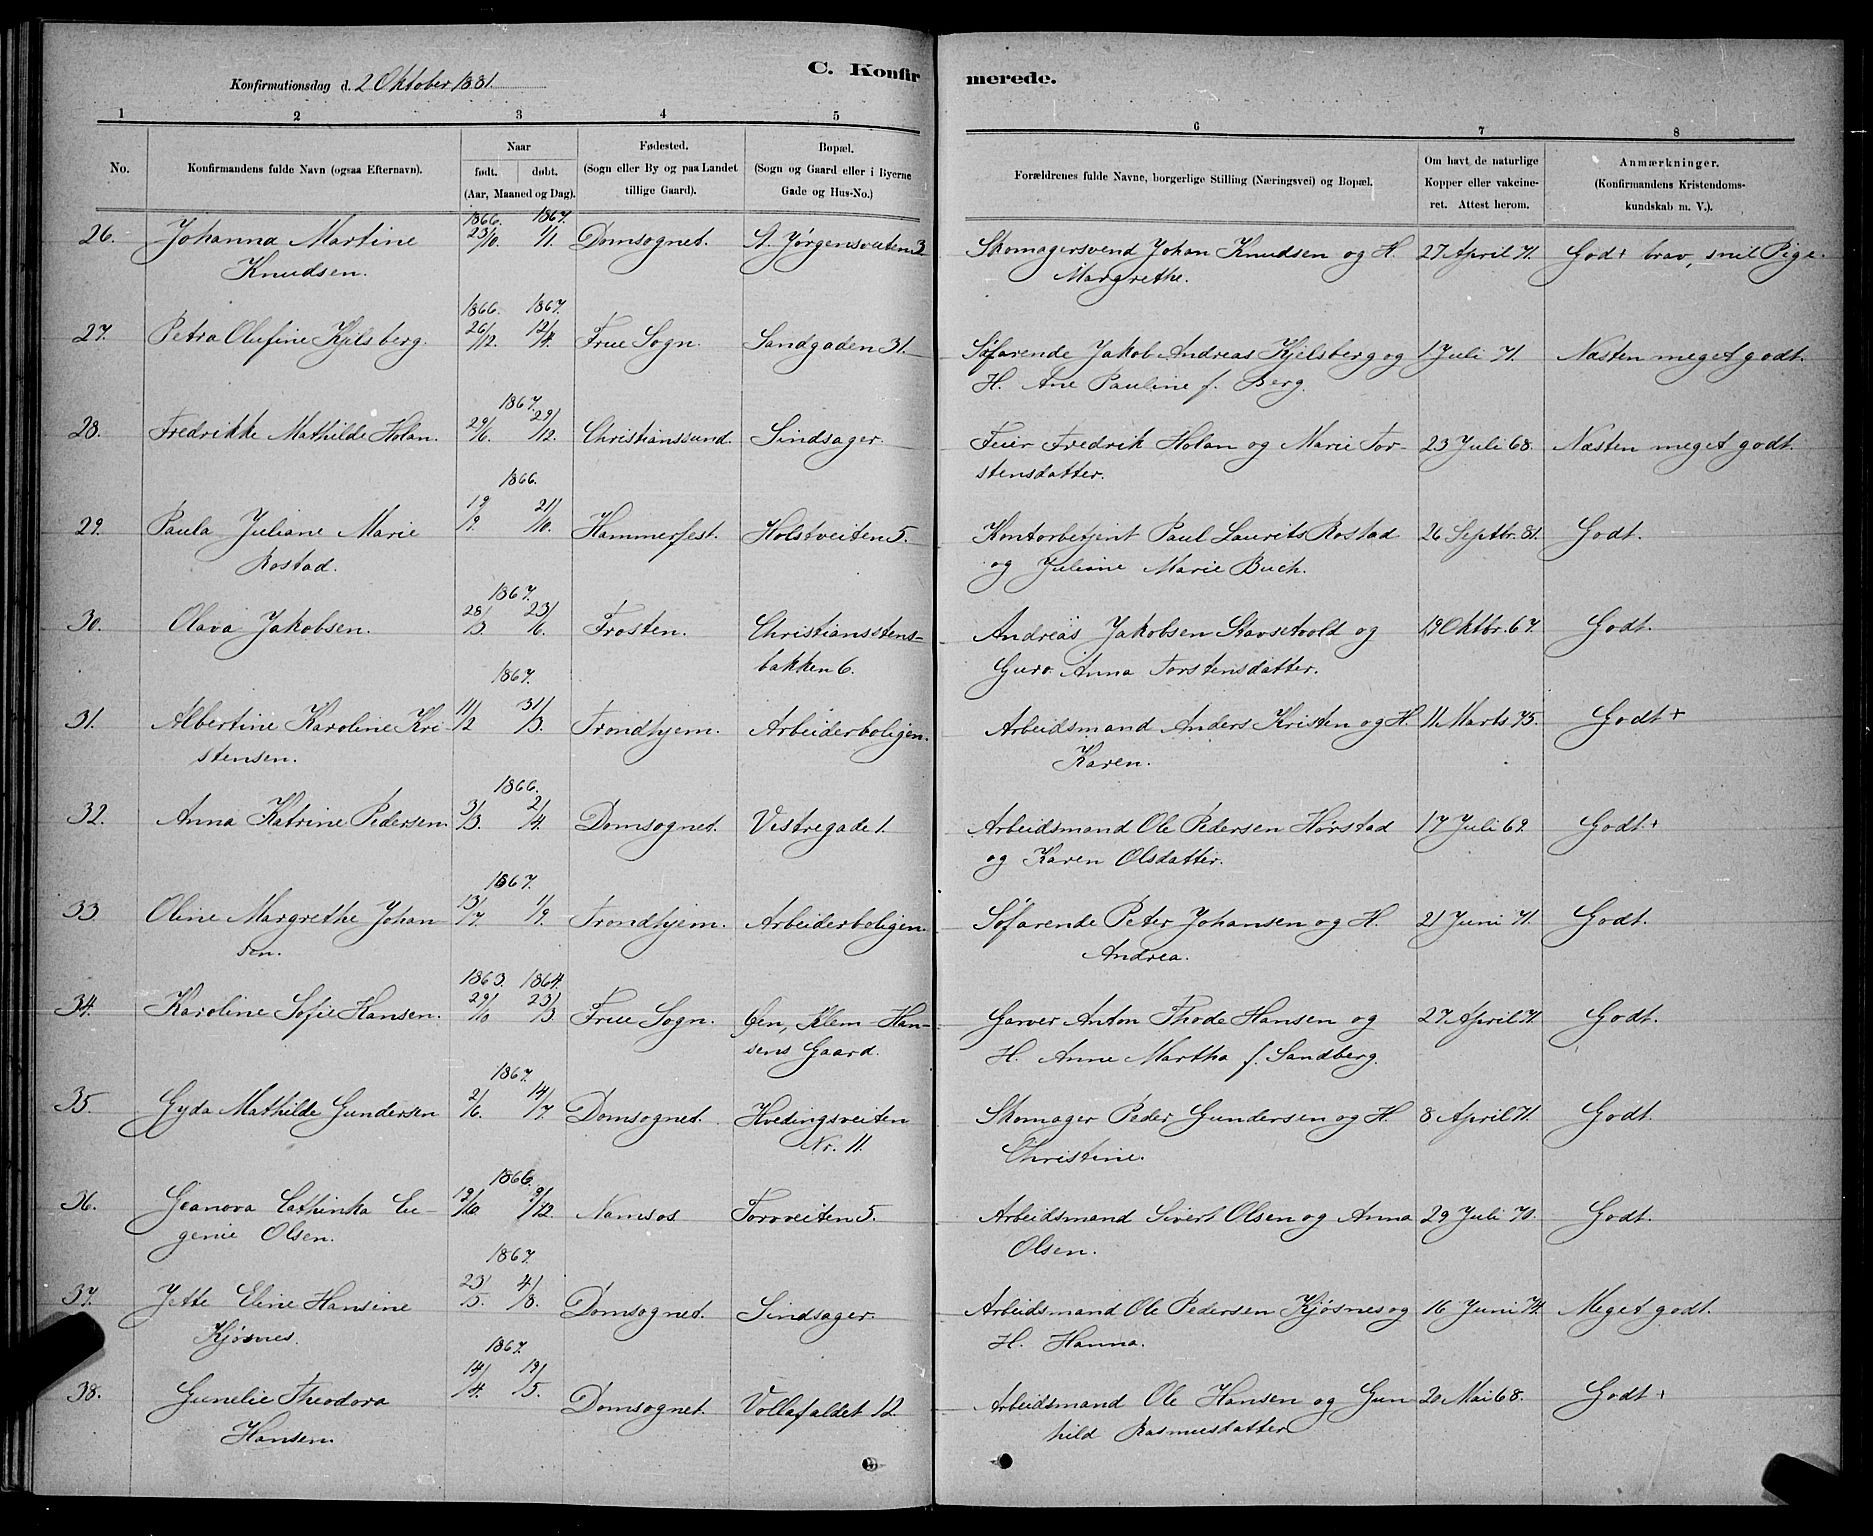 C. Konfirmerede.
Konfirmationsdag d. 2 Oktober 1881.
1 2 3 4 5 6 7 8
No.
Konfirmandens fulde Navn (ogsaa Efternavn).
Naar
født. døbt.
(Aar, Maaned og Dag).
Fødested.
(Sogn eller By og paa Landet
tillige Gaard).
Bopæl.
(Sogn og Gaard eller i Byerne
Gade og Hus-No.)
Forældrenes fulde Navne, borgerlige Stilling (Næringsvei) og Bopæl.
Om havt de naturlige
Kopper eller vakcine-
ret. Attest herom.
Anmærkninger.
(Konfirmandens Kristendoms-
kundskab m. V.).
1866. 1867.
26. Johanna Martine 23/10. 1/1. Domsognet. St. Jørgensveiten 3 Skomagersvend Johan Knudsen og H. 27 April 71. Godt + brav, snil Pige.
Knudsen. Margrethe.
1866. 1867.
27. Petra Olufine Kjelsberg. 26/12. 12/4. Frue Sogn. Sandgaden 31. Søfarende Jakob Andreas Kjelsberg og 1 Juli 71. Næsten meget godt.
H. Ane Pauline f. Berg.
1867.
28. Fredrikke Mathilde Holan. 29/6. 29/12. Christianssund. Sindsager. Feier Fredrik Holan og Marie Tor- 23 Juli 68. Næsten meget godt.
stensdatter.
1866.
29. Paula Juliane Marie 19/9. 21/10. Hammerfest. Holstveiten 5. Kontorbetjent Paul Laurits Rostad 26 Septbr. 81. Godt.
Rostad. og Juliane Marie Buch.
1867.
30. Olava Jakobsen. 28/3. 23/6. Frosten. Christiansstens- Andreas Jakobsen Stavsetvold og 19 Oktbr. 67. Godt.
bakken 6. Guro Anna Torstensdatter.
1867.
31. Albertine Karoline Kri- 11/2 31/3. Trondhjem. Arbeiderboligen. Arbeidsmand Anders Kristen og H. 11 Marts 75. Godt +
stensen. Karen.
1866.
32. Anna Katrine Pedersen. 3/3. 2/4. Domsognet. Vestregade 1. Arbeidsmand Ole Pedersen Hørstad 17 Juli 69. Godt. +
og Karen Olsdatter.
1867.
33. Oline Margrethe Johan 13/7. 1/9. Trondhjem. Arbeiderboligen. Søfarende Peter Johansen og H. 21 Juni 71. Godt.
sen. Andrea.
1863. 1864.
34. Karoline Sofie Hansen. 29/10 23/3. Frue Sogn. Øen, Klem Han- Garver Anton Thode Hansen og 27 April 71. Godt.
sens Gaard. H. Anne Martha f. Sandberg.
1867.
35. Gyda Mathilde Gundersen 2/6. 14/7. Domsognet. Hvedingsveiten Skomager Peder Gundersen og H. 8 April 71. Godt.
Nr. 11. Christine.
1866.
36. Geanova Cathinka Eu- 19/10. 9/12. Namsos Torvveiten 5. Arbeidsmand Sivert Olsen og Anna 29 Juli 70. Godt.
genie Olsen. Olsen.
1867.
37. Jette Eline Hansine 23/5. 4/8. Domsognet. Sindsager. Arbeidsmand Ole Pedersen Kjøsnes og 16 Juni 74. Meget godt.
Kjøsnes. H. Hanna.
1867.
38. Gunelie Theodora 14/4. 19/5. Domsognet. Vollafaldet 12. Arbeidsmand Ole Hansen og Gun 20 Mai 68. Godt +
Hansen. hild Rasmusdatter